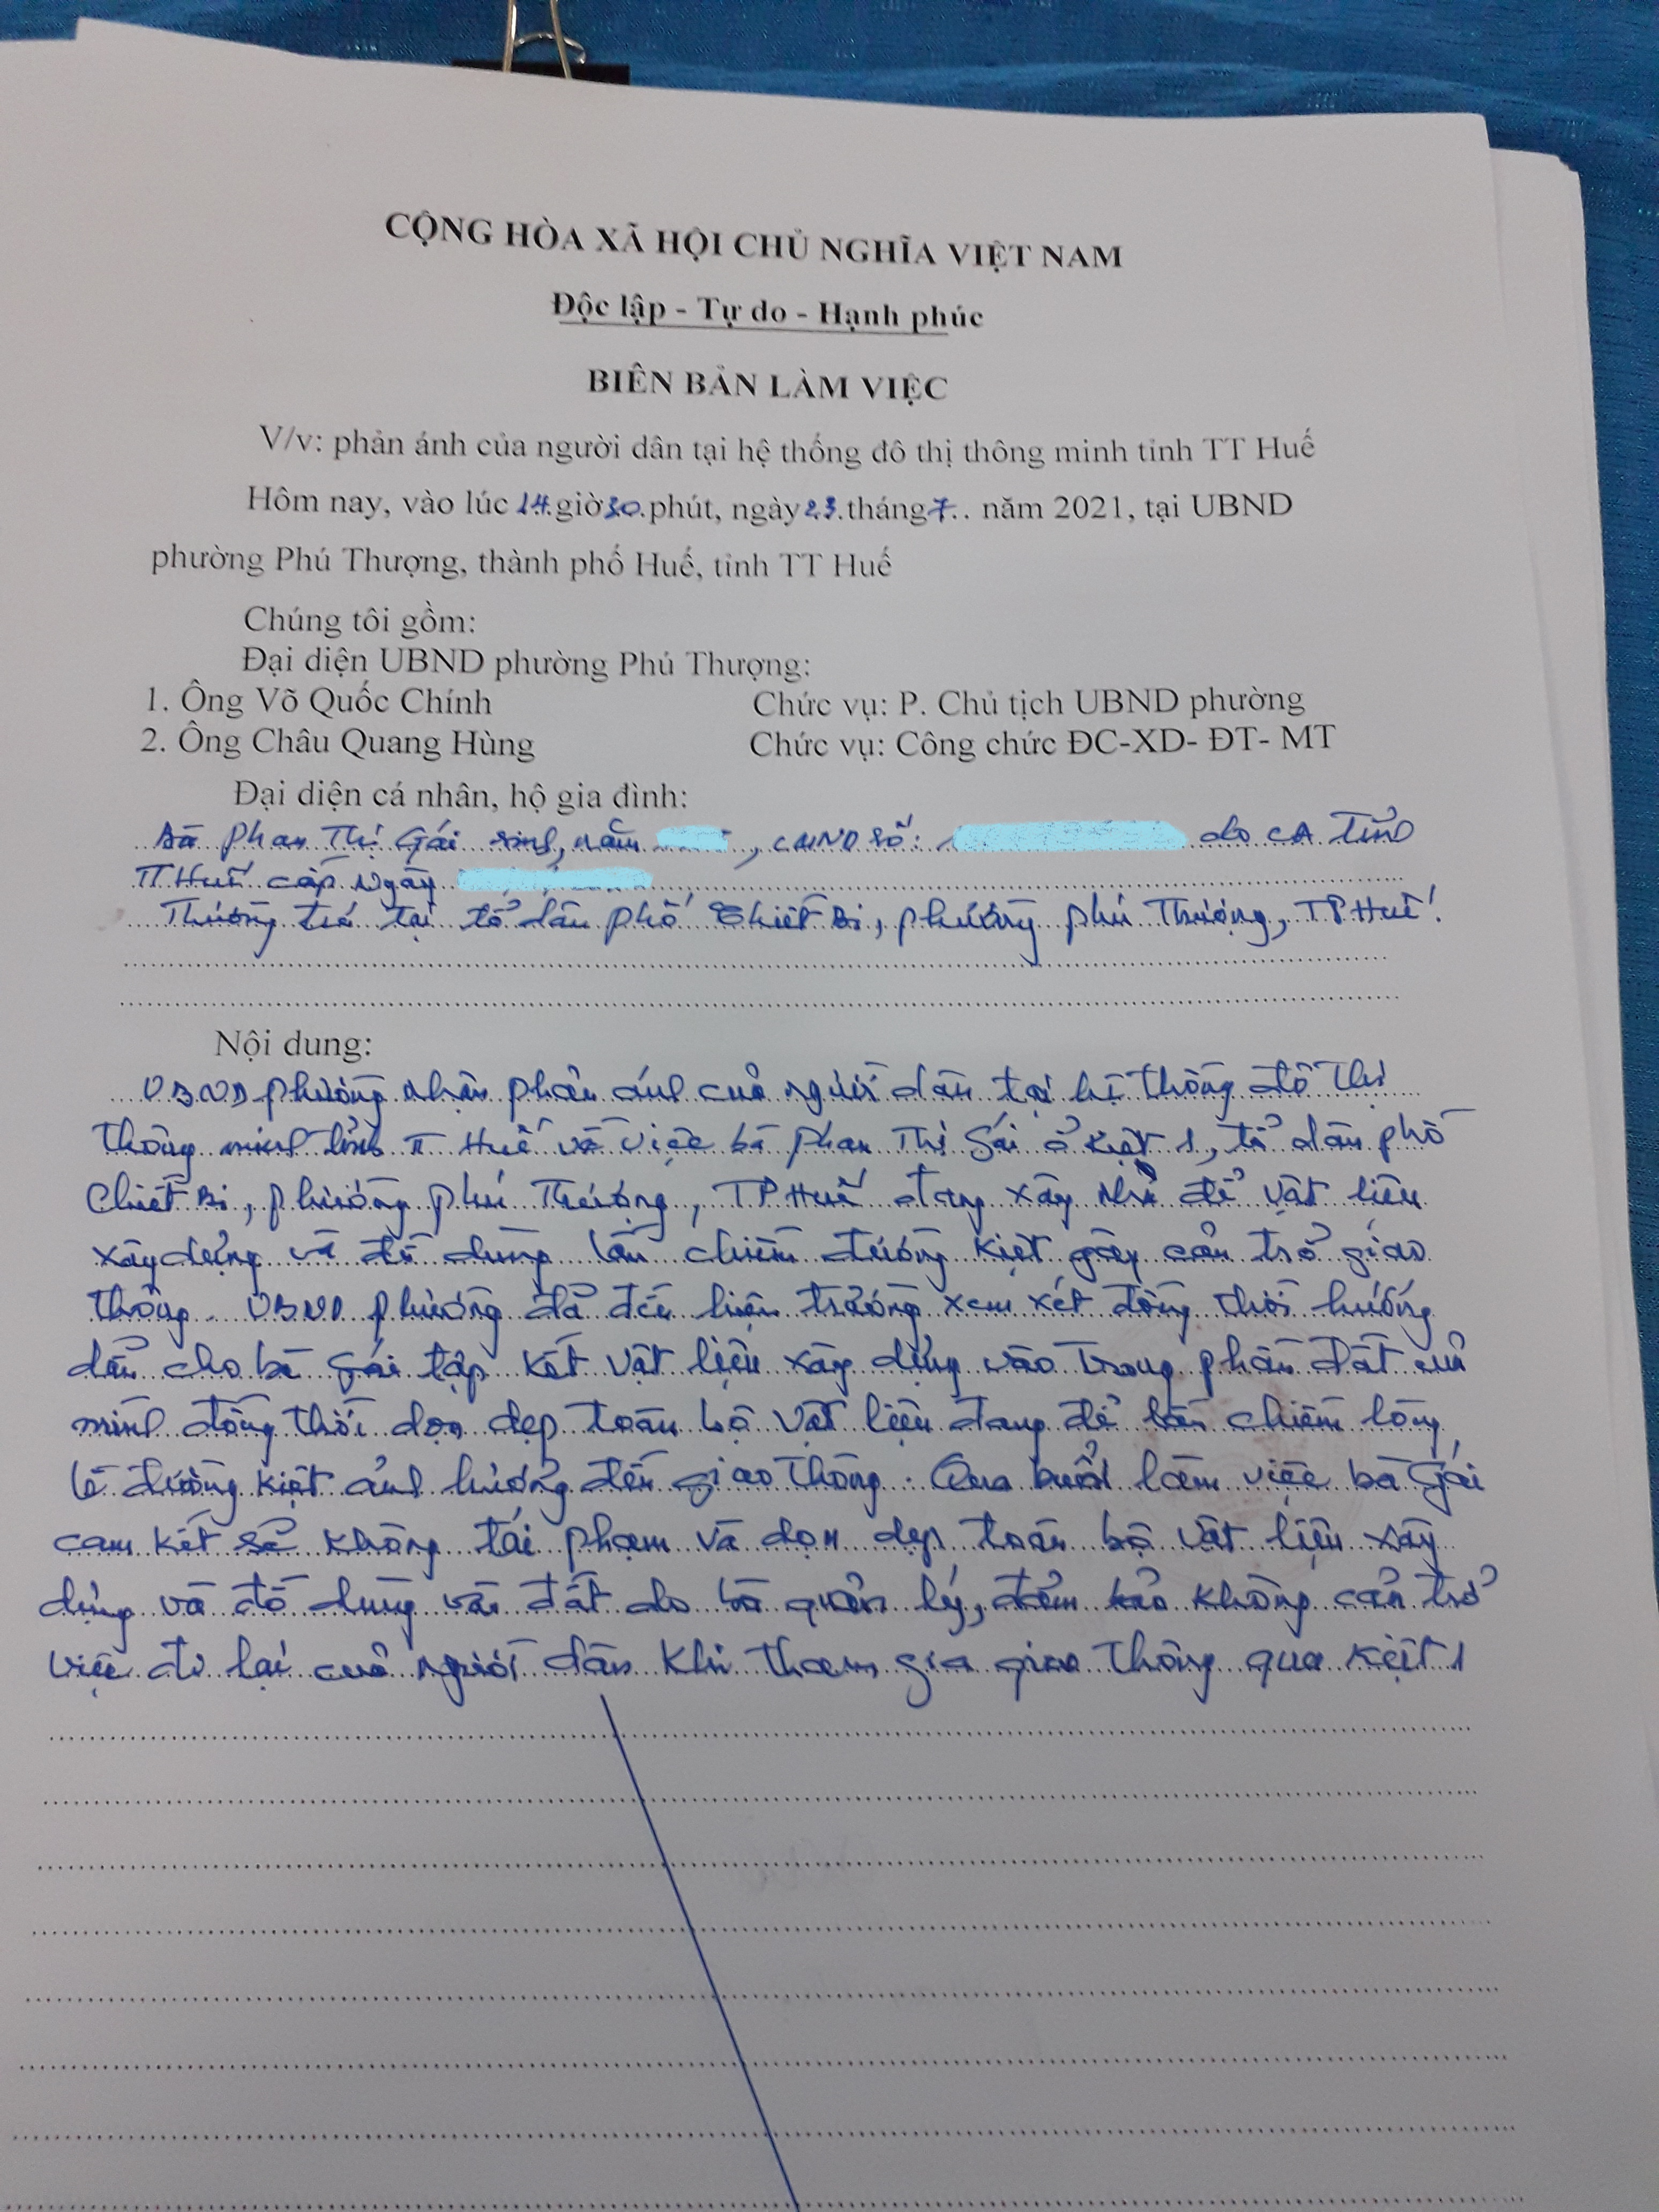 CỘNG HÒA XÃ HỘI CHỦ NGHĨA VIỆT NAM
Độc lập - Tự do - Hạnh phúc
BIÊN BẢN LÀM VIỆC
V/v: phản ánh của người dân tại hệ thống đô thị thông minh tỉnh TT Huế
Hôm nay, vào lúc 14 giờ 30 phút, ngày 23 tháng 7 năm 2021, tại UBND
phường Phú Thượng, thành phố Huế, tỉnh TT Huế
Chúng tôi gồm:
Đại diện UBND phường Phú Thượng:
1. Ông Võ Quốc Chính Chức vụ: P. Chủ tịch UBND phường
2. Ông Châu Quang Hùng Chức vụ: Công chức ĐC-XD- ĐT- MT
Đại diện cá nhân, hộ gia đình:
Bà Phan Thị Gái sinh, năm , CMND số: do CA Tỉnh
TT Huế cấp ngày
Thường trú tại tổ dân phố Chiết Bi, phường Phú Thượng, TP Huế.
Nội dung:
UBND phường nhận phản ánh của người dân tại hệ thống đô thị
thông minh tỉnh TT Huế về việc bà Phan Thị Gái ở Kiệt 1, tổ dân phố
Chiết Bi, phường Phú Thượng, TP Huế đang xây nhà để vật liệu
xây dựng và đồ dùng lấn chiếm đường Kiệt gây cản trở giao
thông. UBND phường đã đến hiện trường xem xét đồng thời hướng
dẫn cho bà Gái tập kết vật liệu xây dựng vào trong phần đất của
mình đồng thời dọn dẹp toàn bộ vật liệu đang để lấn chiếm lòng
lề đường kiệt ảnh hưởng đến giao thông. Qua buổi làm việc bà Gái
cam kết sẽ không tái phạm và dọn dẹp toàn bộ vật liệu xây
dựng và đồ dùng vào đất do bà quản lý, đảm bảo không cản trở
việc đi lại của người dân khi tham gia giao thông qua Kiệt 1